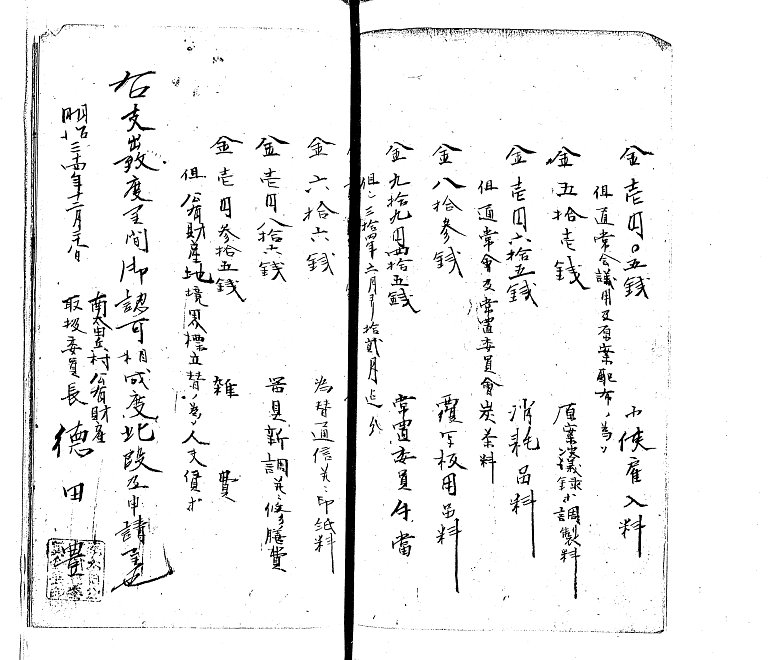 金壱円〇五銭 小使雇入料
但通常会議用及原案配布ノ為メ
金五拾壱銭 原案議録等調製料
金壱円六拾五銭 消耗品料
但通常会及常置委員會炭茶料
金八拾参銭 覆写板用品料
金九拾九円四拾五銭 常置委員手當
但シ三拾四年六月ヨリ拾貳月迄分
金六拾六銭 為替通信并ニ印紙料
金壱円八拾六銭 器具新調并ニ修膳費
金壱円参拾五銭 雑費
但公有財産地境界標立替ノ為メ人夫賃等
右支出致度候間御認可相成度此段及申請候也
明治三十四年十二月
南太田村公有財産
取扱委員長 徳田豊